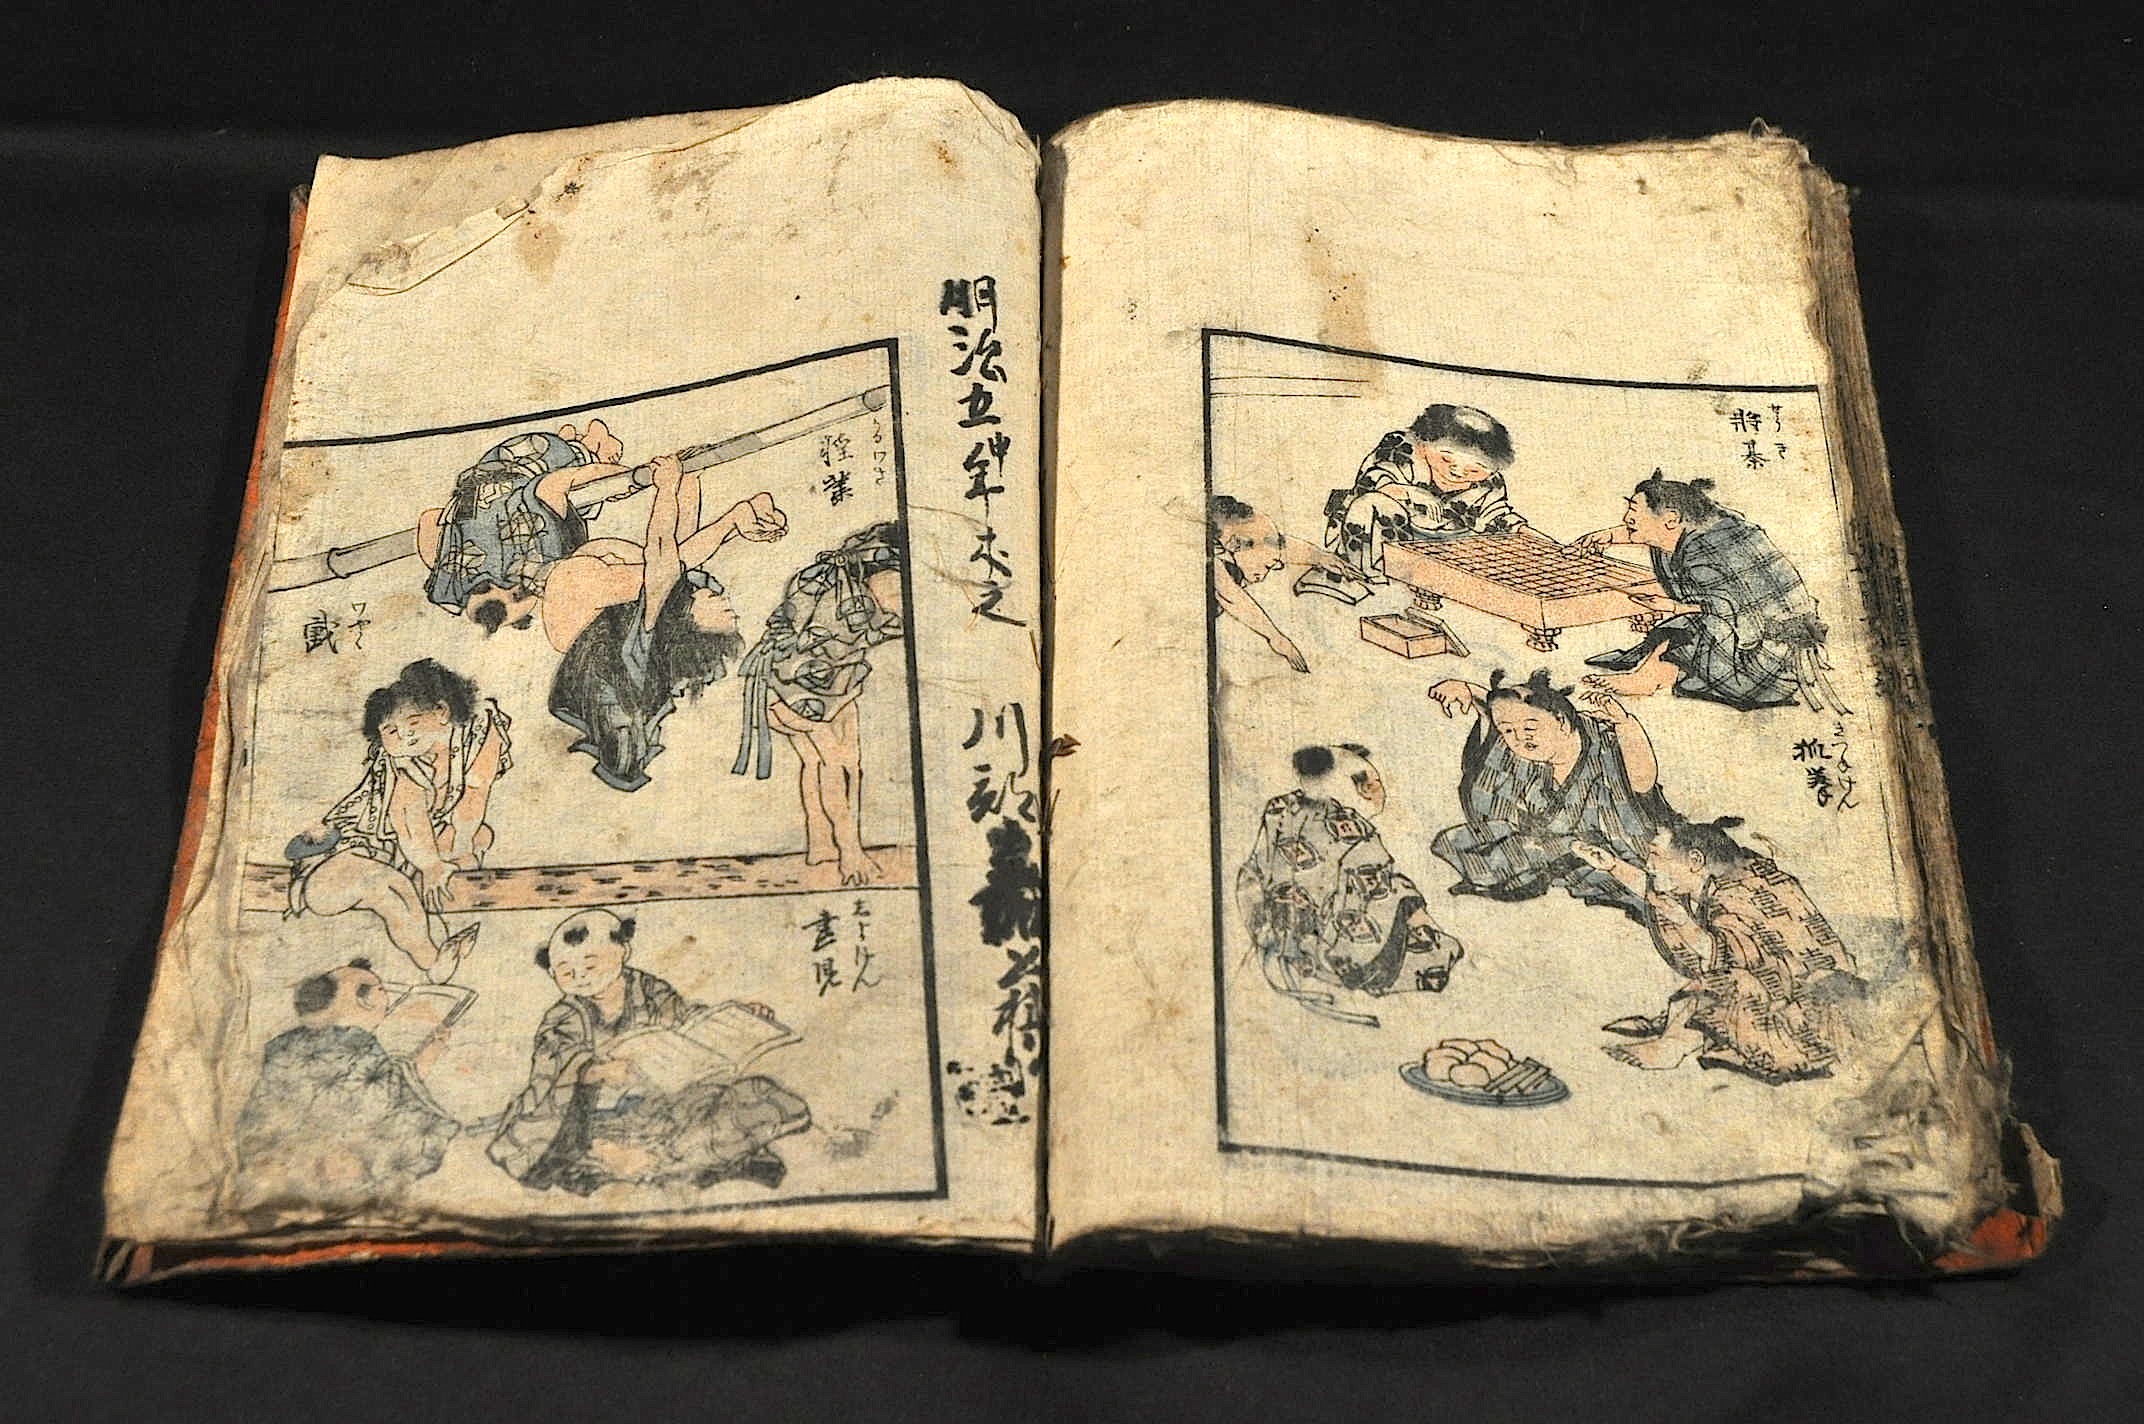 せうぎ
将棊
きつねけん
狐拳
明治五申年求之
川部
かるワさ
軽業
ワやく
戯
しよけん
書見